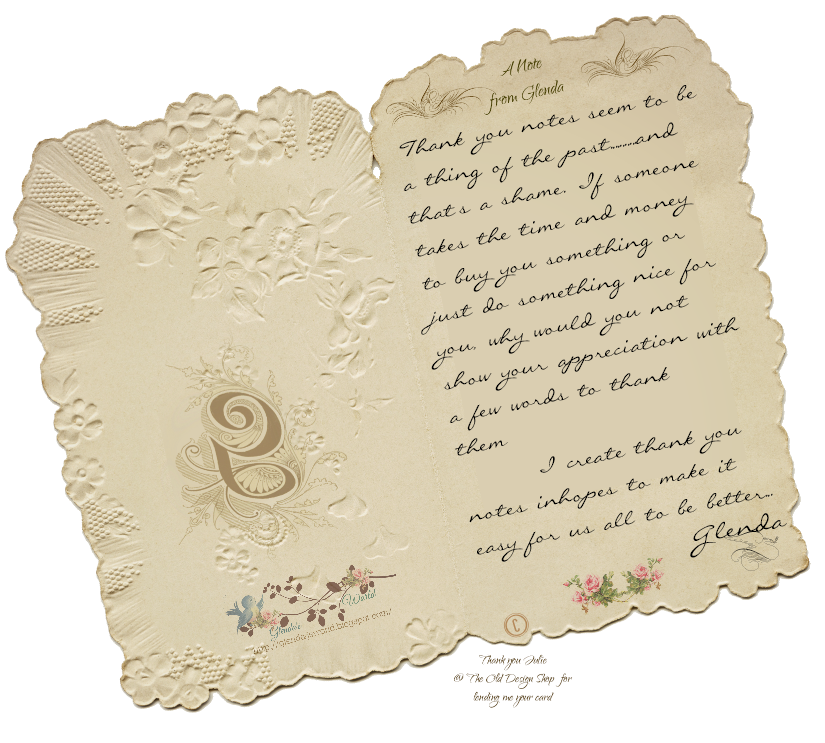 A Note
from Glenda
Thank you notes seem to be
a thing of the past.......and
that's a shame. If someone
takes the time and money
to buy you something or
just do something nice for
you, why would you not
show your appreciation with
a few words to thank
them
I create thank you
notes inhopes to make it
easy for us all to be better...
Glenda
Glenda's
World
www.glendasworld.blogspot.com/
C
Thank you Julie
@ The Old Design Shop for
lending me your card